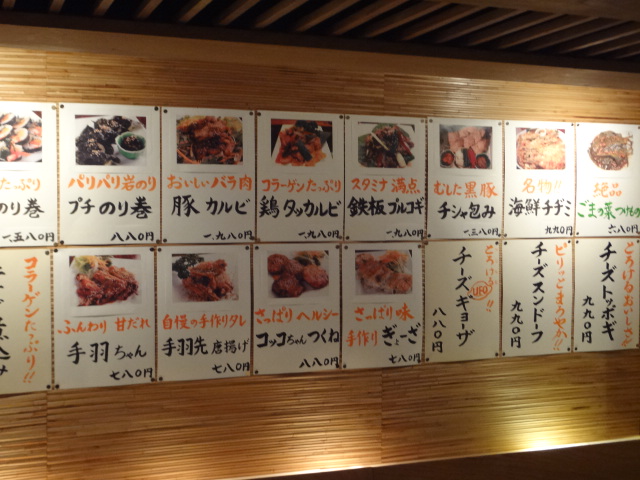 たっぷり
のり巻
一.五八〇円
パリパリ岩のり
プチのり巻
八八〇円
おいしいバラ肉
豚カルビ
一.九八〇円
コラーゲンたっぷり
鶏タッカルビ
一.九八〇円
スタミナ満点
鉄板プルコギ
一.九八〇円
むした黒豚
チシャ包み
一.三八〇円
名物!!
海鮮チヂミ
九九〇円
絶品
ごまの葉つけもの
六八〇円
コラーゲンたっぷり!!
ふんわり 甘だれ
手羽ちゃん
七八〇円
自慢の手作りタレ
手羽先 唐揚げ
七八〇円
さっぱりヘルシー
コッコちゃんつくね
八八〇円
さっぱり味
手作りぎょーざ
七八〇円
とろける!!
チーズギョーザ
八八〇円
ピリッごまうや!!
チーズスンドーフ
九九〇円
とろけるおいしさ
チーズトッポギ
九九〇円